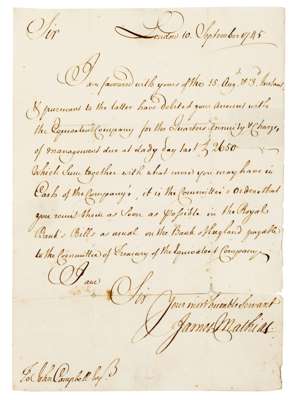 Sir London 10. September 1745
I am favoured with yours of the 15 Augt. & 3d. Instant
& pursuant to the latter have debited your Account with
the Equivalent Company for the Quarters Annuity & Charge
of management due at Lady day last £ 2650
Which Sum together with what more you may have in
Cash of the Company's, it is the Committee's Orders that
you remit them as Soon as possible in the Royal
Bank's Bills as usual on the Bank of England payable
to the Committee of Treasury of the Equivalent Company
I am
Sir
Your most humble Servant
James Mathias
To John Campbell Esqr.